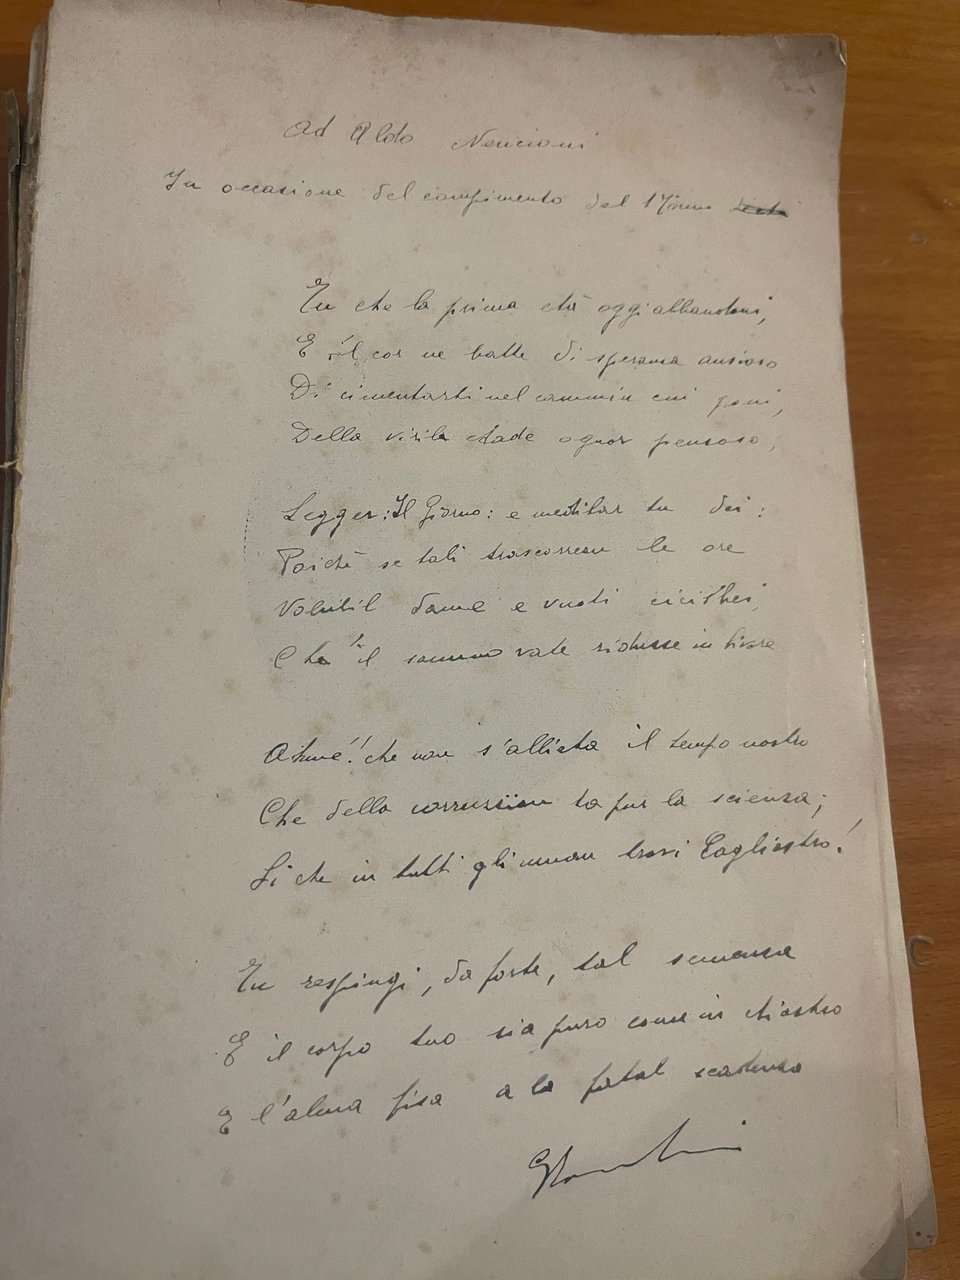 Ad Aldo Nencioni
In occasione del compimento del 17 anno
Tu che la prima età oggi abbandoni,
E il cor ne batte di speranza ansioso
Di cimentarti nel cammin cui poni,
Della virile etade ognor pensoso,
Legger: Il Giorno: e meditar tu dei:
Poichè se tali trascorrean le ore
Volubil dame e vuoti cicisbei,
Che il sommo vate ridusse in livore
Ahimè! che non s'allieta il tempo nostro
Che della corruzion fa pur la scienza;
Si che in tutti gli uman trovi Cagliostro!
Tu respingi, da forte, tal semenza
E il corpo tuo sia puro come in chiostro
E l'alma fisa a la fatal scadenza